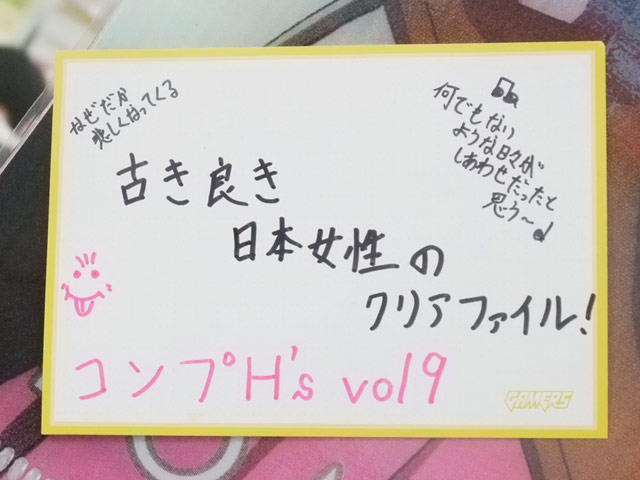 なぜだか
悲しくなってくる
何でもない
ような日々が
しあわせだったと
思う～♪
古き良き
日本女性の
クリアファイル!
コンプH's vol9
GAMERS